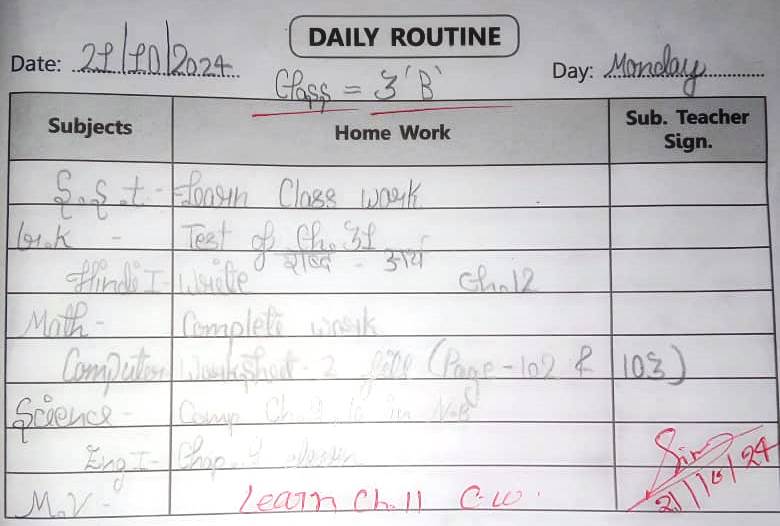 DAILY ROUTINE
Date: 21/10/2024 Day: Monday
Class = 3 'B'
Subjects Home Work Sub. Teacher Sign.
S.S.t - Learn Class work
G.K - Test of Ch. 31
Hindi I - Write शब्द - अर्थ Ch.12
Math - Complete work
Computer Worksheet - 2 (Page - 102 & 103)
Science - Comp Ch. 9, 10 in N.B
Eng I - Chap. 9
M.V - Learn Ch. 11 C.W.
21/10/24